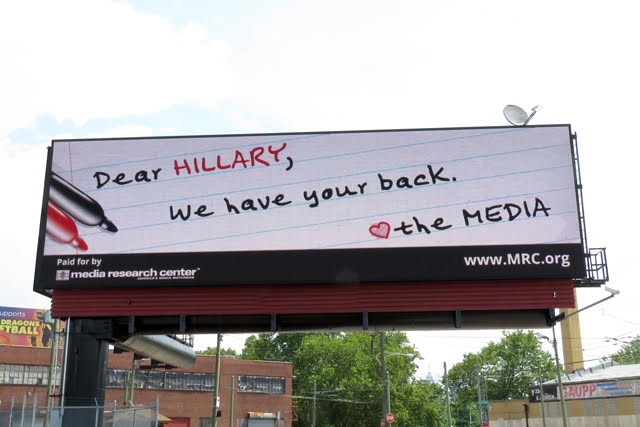 Dear HILLARY,
We have your back.
the MEDIA
Paid for by
media research center™
AMERICA'S MEDIA WATCHDOG
www.MRC.org
upports
DRAGONS
FTBALL
SAUPP